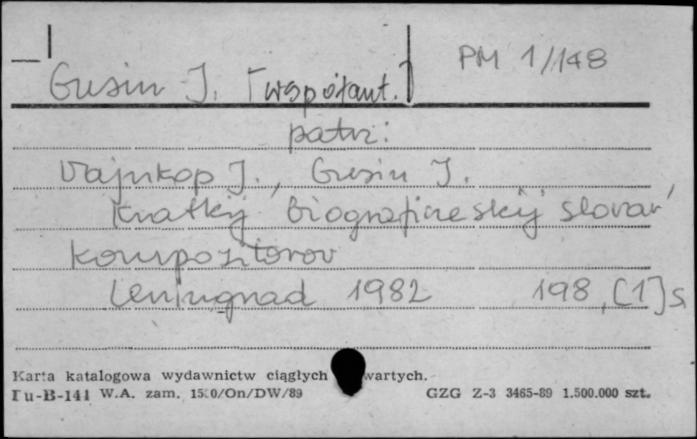 PM 1/148
Gusin I. [współaut.]
patrz:
Vajnkop J., Gusin I.
Kratkij biografičeskij slovar'
kompozitorov
Leningrad 1982 198, [1] s
Karta katalogowa wydawnictw ciągłych wartych.
Pu-B-141 W.A. zam. 1510/On/DW/89 GZG Z-3 3465-89 1.500.000 szt.